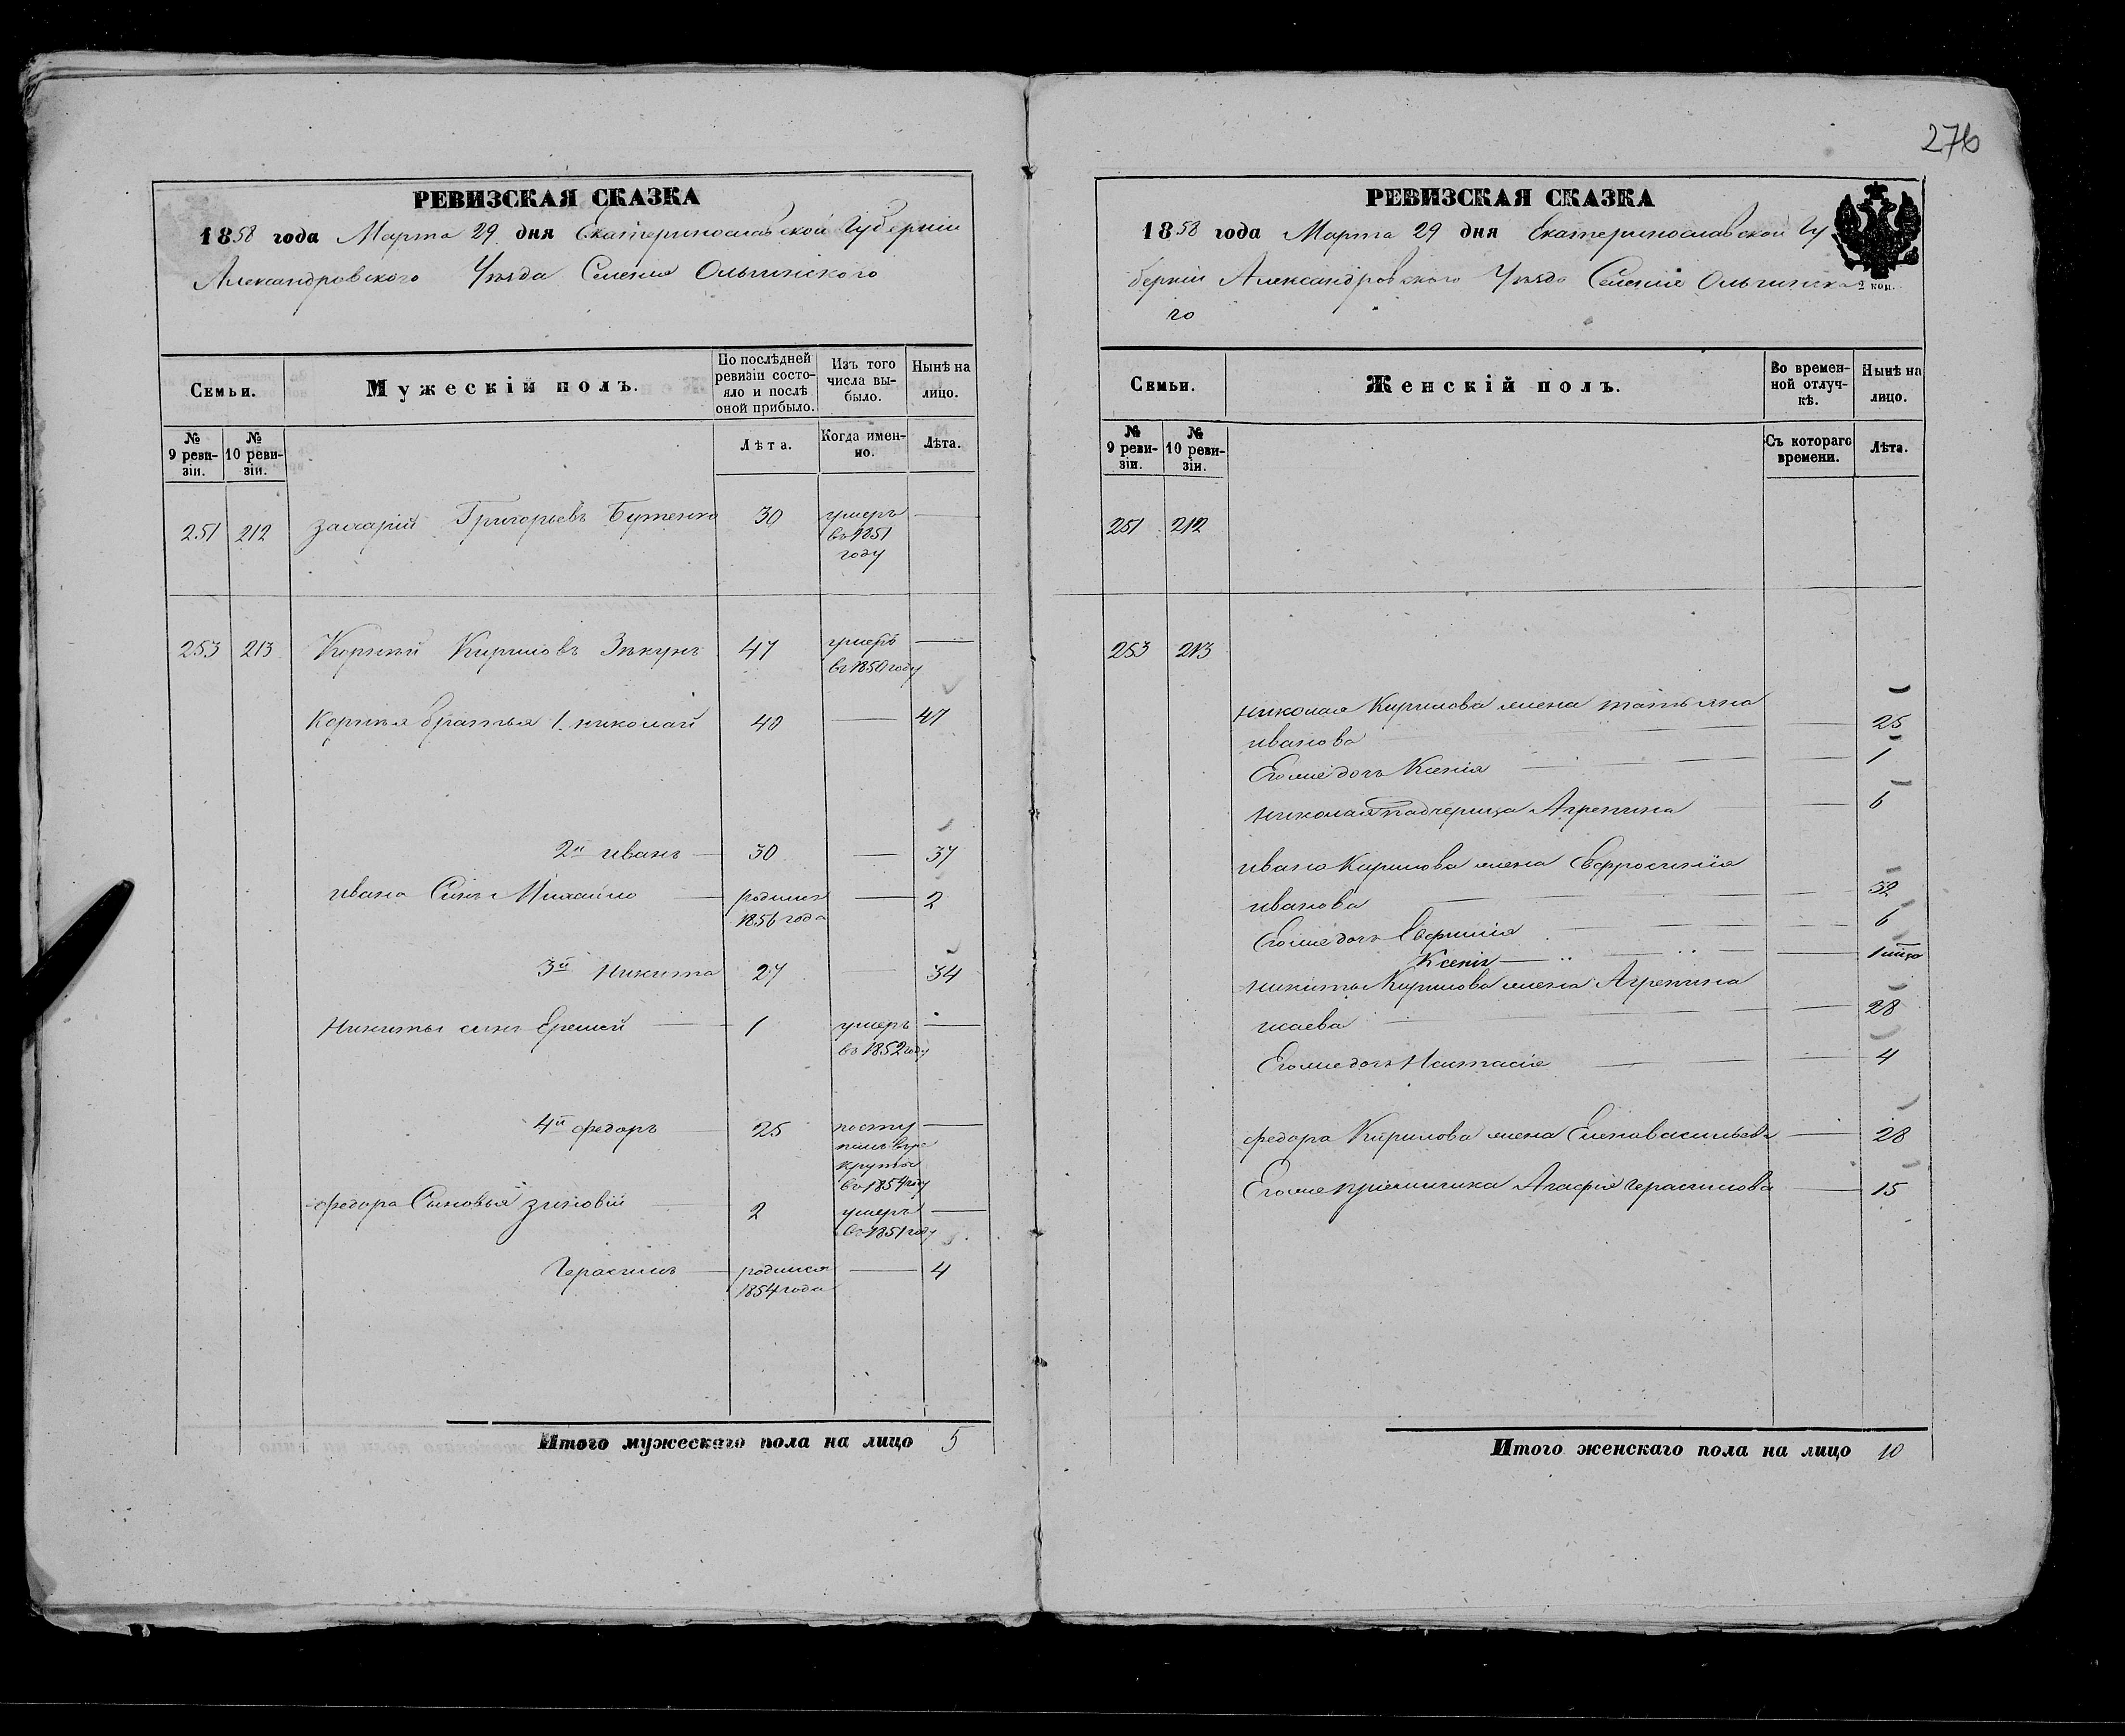 276
РЕВИЗСКАЯ СКАЗКА
1858 года Марта 29 дня Екатеринославской Губерніи
Александровского Уѣзда Селенія Ольгинского
Семьи.
Мужескій полъ.
По послѣдней ревизіи состояло и послѣ оной прибыло.
Изъ того числа выбыло.
Нынѣ на лицо.
№ 9 ревизіи.
№ 10 ревизіи.
Лѣта.
Когда именно.
Лѣта.
251 212 Захарій Григорьевъ Бутенко 30 умеръ
въ 1851
году
253 213 Корнѣй Кириловъ 47 умеръ
въ 1850 году
Корнѣя братья 1. николай 40 — 47
2й иванъ — 30 — 37
ивана Сынъ Михайло — родился — 2
1856 года
3й Никита 27 — 34
Никиты сынъ Еремей — 1 умеръ —
въ 1852 году
4й федоръ — 25 посту —
пилъ въ ре
круты
въ 1854 году
федора Сыновья зиновій — 2 умеръ —
въ 1851 году
Герасимъ — родился — 4
1854 года
Итого мужескаго пола на лицо 5
РЕВИЗСКАЯ СКАЗКА
1858 года Марта 29 дня Екатеринославской Гу
берніи Александровского Уѣзда Селенія Ольгинска
го
2 коп.
Семьи.
Женскій полъ.
Во временной отлучкѣ.
Нынѣ на лицо.
№ 9 ревизіи.
№ 10 ревизіи.
Съ котораго времени.
Лѣта.
251 212
253 213
николая Кирилова жена татьяна
иванова — 25
Егоже дочь Ксенія — 1
николая падчерица Агрепина — 6
ивана Кирилова жена Евфросинія
иванова — 32
Егоже дочь — 6
Ксенія — " — " —
никиты Кирилова жена Агрепина
исаева — 28
Егоже дочь Настасія — 4
федора Кирилова жена Елена васильева — 28
Егоже Агафія герасимова — 15
Итого женскаго пола на лицо 10